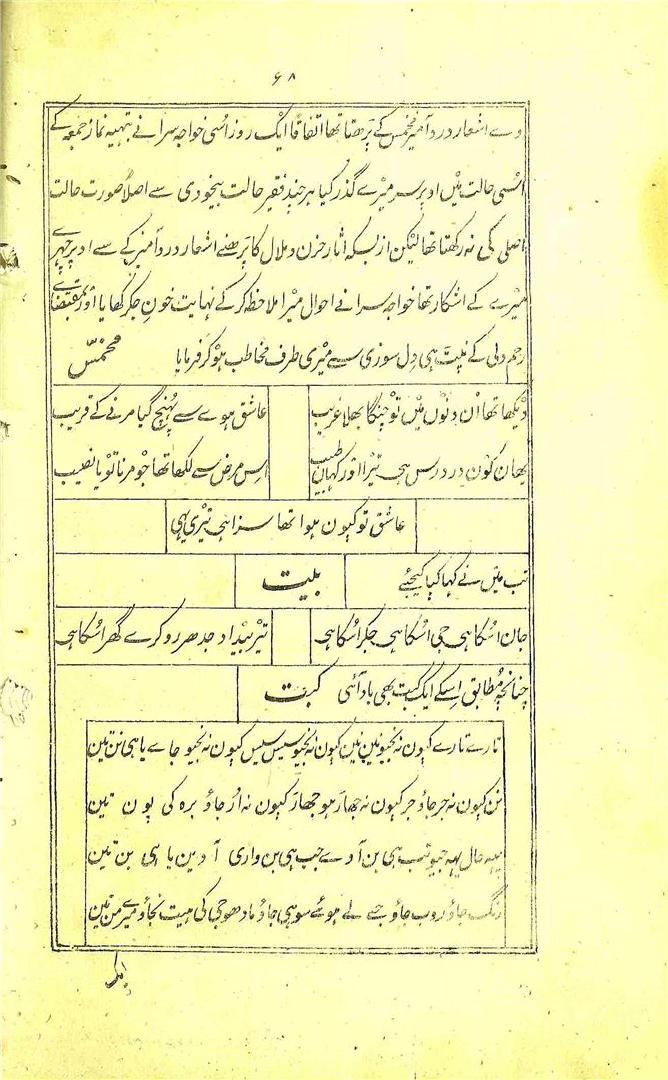 ۶۸
وے اشعار درد آمیز مخمس کے پڑھتا تھا اتفاقاً ایک روز اُسی خواجہ سرا نے بتہیہ نماز جمعہ کے
اُسی حالت میں اوپر سر میرے گذر کیا ہر چند فقیر حالت بیخودی سے اصلا صورت حالت
اصلی کی نہ رکھتا تھا لیکن از بسکہ آثار حزن و ملال کا پڑھنے اشعار درد آمیز کے سے اوپر چہرے
میرے کے آشکار تھا خواجہ سرا نے احوال میرا ملاحظہ کر کے نہایت خون جگر کھایا اور بمقتضاے
رحم دلی کے نپٹ ہی دل سوزی سے میری طرف مخاطب ہو کر فرمایا مخمس
دیکھا تھا اُن دنوں میں تو چنگا بھلا غریب عاشق ہوے سے پُہنچ گیا مرنے کے قریب
یھان کون درد رس ہی تیرا اور کہان طبیب اس مرض سے لکھا تھا جو مرنا تو یا نصیب
عاشق تو کیون ہوا تھا سزا ہی تیری یہی
تب میں نے کہا کیا کیجئے بیت
جان اُسکا ہی جی اُسکا ہی جگر اُسکا ہی تیر بیداد جدھر رو کرے گھر اُسکا ہی
چنانچہ مطابق اِسکے ایک کبت بھی یاد آئی کبت
تارے تارے کیون نہ بُجیو نین نین کیون نہ بُجیو سیس سیس کیون نہ بُجیو جاے یا ہی تن تین
تن کیون نہ جر جاؤ جر کیون نہ چھار ہو چھار کیون نہ اُڑ جاؤ برہ کی پون تین
یہہ حال یہہ جیو تب ہی بن آوے جب ہی بن واری آوین یا ہی بن تین
رنگ جاؤ روپ جاؤ جے لے ہوئے سو ہی جاؤ مادھو جی کی میت نجاؤ میرے من تین
ایک